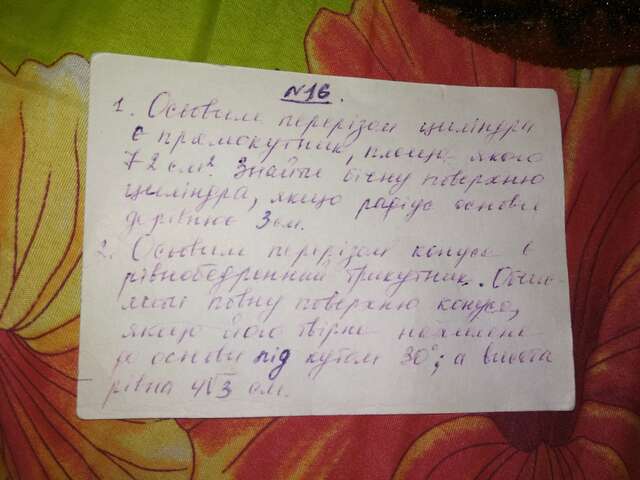 №16.
1. Осьовим перерізом циліндра
є прямокутник, площа якого
72 см². Знайти бічну поверхню
циліндра, якщо радіус основи
дорівнює 3 см.
2. Осьовим перерізом конуса є
рівнобедренний трикутник. Обчис-
лити повну поверхню конуса,
якщо його твірна нахилена
до основи під кутом 30°; а висота
рівна 4√3 см.